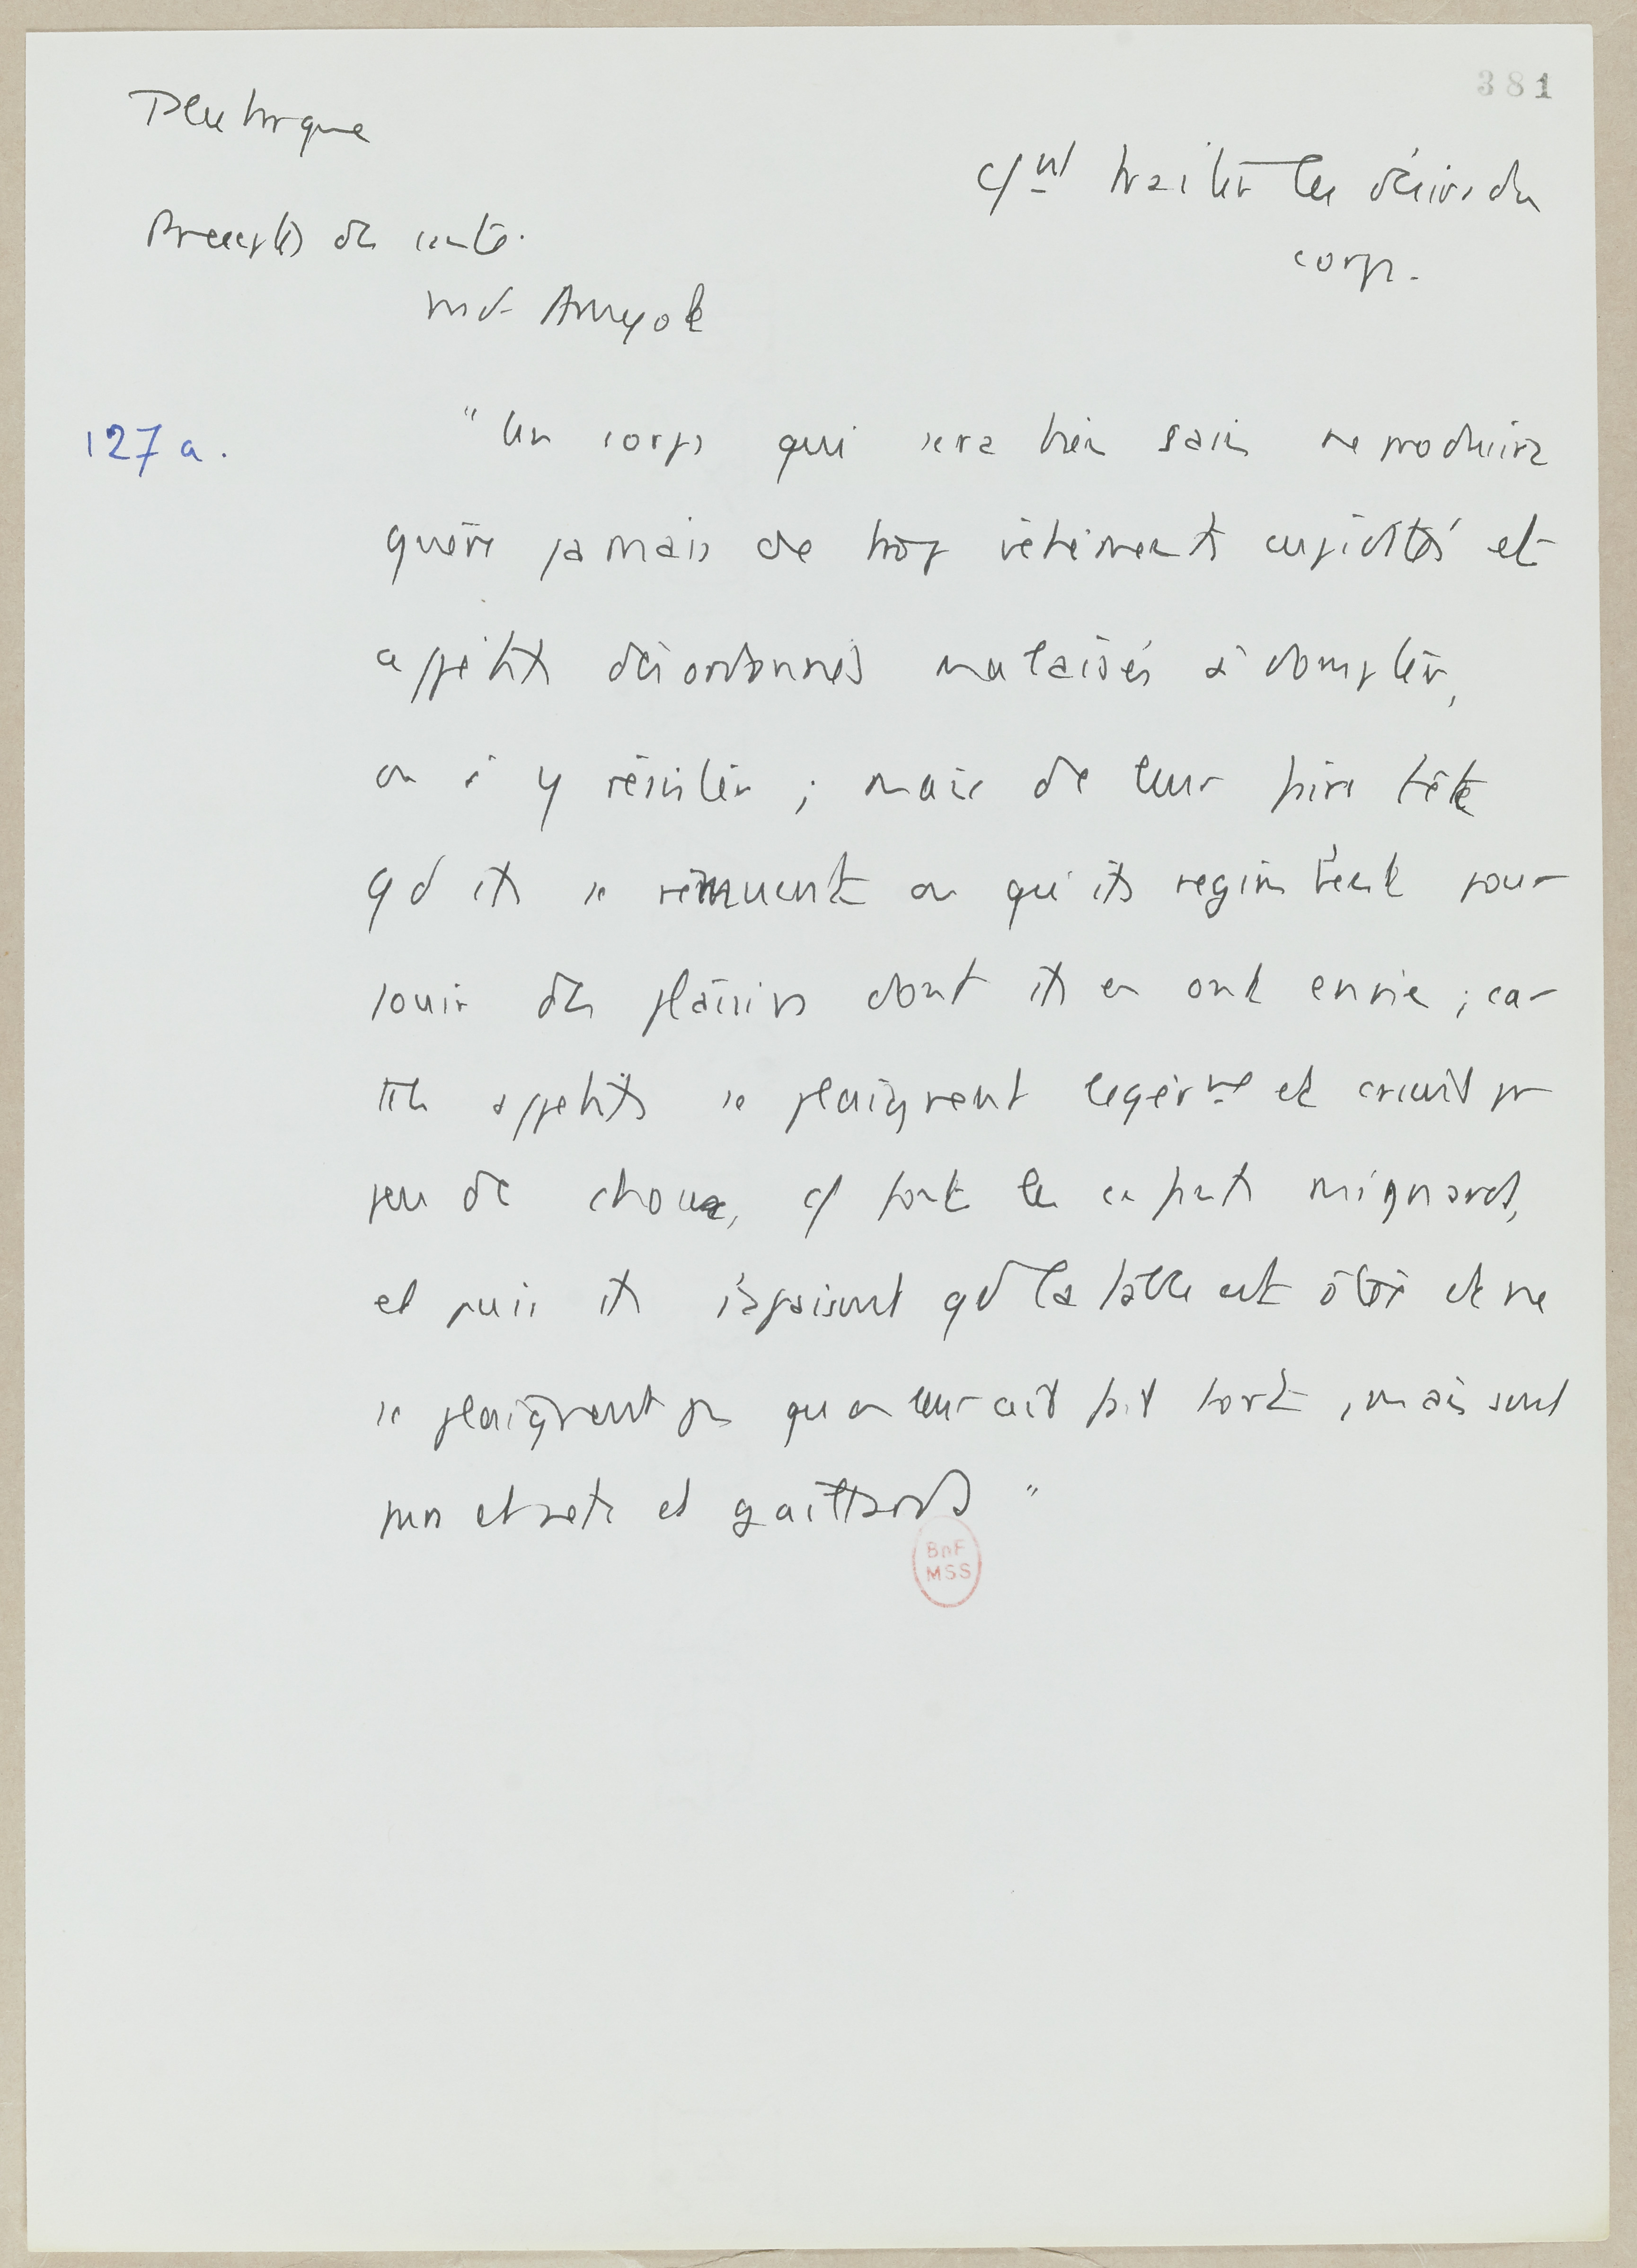 381
Plutarque
cmt traiter les désirs du
corps.
Preceptes de santé.
trad Amyot
127 a.
" Un corps qui sera bien sain ne produira
guère jamais de trop véhéments cupidités et
appétits désordonnés malaisés à dompter,
ou à y résister ; mais de leur faire tête
qd ils se remuent ou qu'ils regimbent pour
jouir des plaisirs dont ils en ont envie ; car
tels appetits se plaignent legèrmt et crient pr
peu de chose, c font les enfants mignards,
et puis ils s'apaisent qd la table est ôtée et ne
se plaignent pas qu on leur ait fait tort, mais sont
purs et nets et gaillards "
BnF
MSS